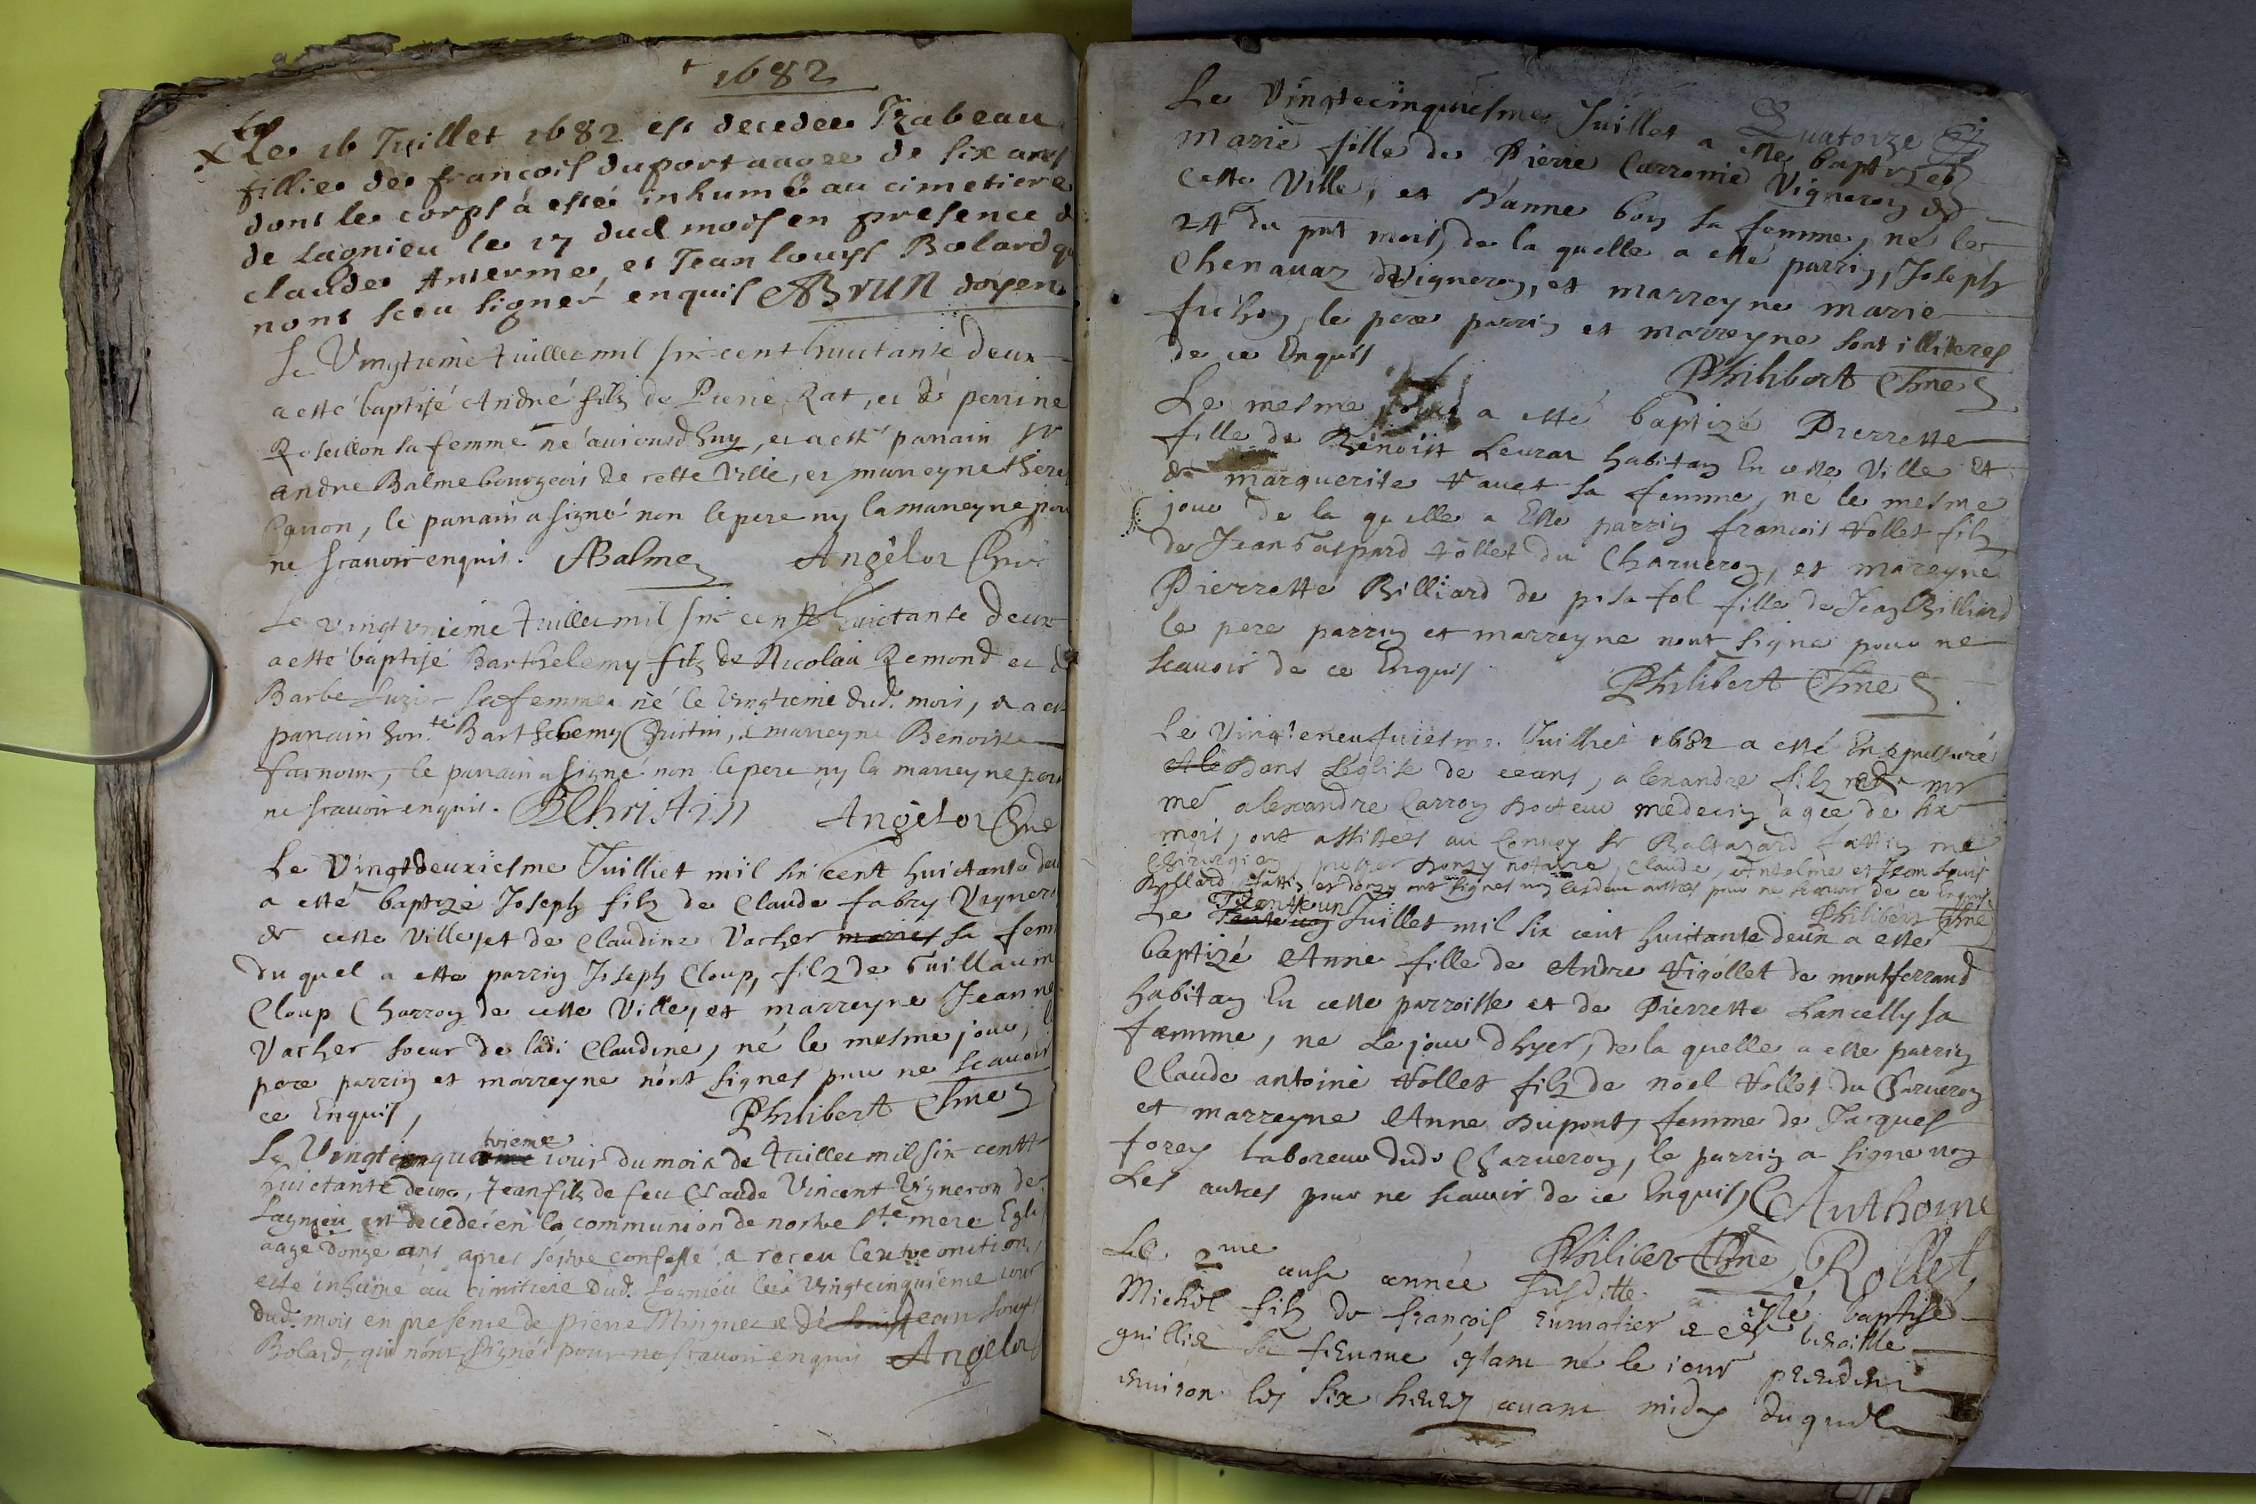 1682
Le 16 Juillet 1682 est decedee Izabeau
fillie de francois duport aagee de six ans
dont le corps a esté inhumé au cimetiere
de Lagnieu le 17 dud mois en presence de
claude Anterme, et Jean louys Bolard qu
nont sceu signer enquis Brun doyen
Le Vingtieme Juillet mil six cent huictante deux
a esté baptisé André filz de Pierre Rat, et de perrine
Roseillon sa femme né aujourdhuy, et a esté parrain sr
andre Balme bourgeois de cette Ville, et marreyne
, le parrain a signé non le pere ny la marreyne pour
ne scavoir enquis. ABalme Angelot
Le vingt unieme Juillet mil six cent huictante deux
a esté baptisé Barthelemy filz de Nicolas Remond et de
Barbe sa femme né le vingtieme dud. mois, & a esté
parrain hon.te Barthelemy Christin, & marreyne Benoiste
, le parrain a signé non le pere ny la marreyne pour
ne scavoir enquis. BChristin Angelot
Le Vingtdeuxiesme Juilliet mil six cent huictante deu
a esté baptizé Joseph filz de Claude fabry Vigneron
de cette Ville, et de Claudine Vacher sa fem
du quel a esté parrin Joseph Cloup, filz de Guillaum
Cloup Charron de cette Ville, et marreyne Jeanne
Vacher soeur de ladi Claudine, né le mesme jour,
pere parrin et marreyne nont signes pour ne scavoir
ce Enquis, Philibert
Le Vingt troieme jour du mois de Juillet mil six centt
huictante deux, Jean filz de feu Claude Vincent Vigneron de
Lagnieu est decedé en la communion de nostre Ste mere Egli
aagé donze ans apres sestre confessé a receu lextre onction,
esté inhumé au cimitiere dud. Lagnieu le Vingtcinquieme jour
dud. mois en presence de pierre Minguet & de Jean Louys
Bolard, qui nont signés pour ne scavoir enquis Angelot
Le Vingtecinquiesme Juillet a este baptizee
Quatorze
Marie fille de Pierre Carronie Vigneron de
cette Ville, et Danne bon sa femme, né le
24e du pnt mois, de la quelle a esté parrin, Joseph
Chenavaz Vigneron, et marreyne marie
, le pere parrin et marreyne sont illiteres
de ce Enquis
Philibert
Le mesme jour a esté baptizé Pierrette
fille de Benoist Levrat habitan En cette Ville et
de marguerite Vauet sa femme, né le mesme
jour de la quelle a Este parrin francois Vollet filz
de Jean Gaspard Vollet du Charveron, et mareyne
Pierrette Billiard de fille de Jean Billiard
le pere parrin et marreyne nont signe pour ne
scavoir de ce Enquis
Philibert
Le Vingteneufuiesme Juillet 1682 a esté Ensepulturé
Dans Léglise de ceans, alexandre filz de mr
me alexandre Carron docteur medecin, agee de six
mois, ont assistees au Convoy Sr Baltazard me
Chirurgien, donzy notaire, Claude, Antelme et Jean Louis
Bollard, et donzy ont signes non les deux autres pour ne scavoir de ce Enquis
Philibert
Le Trentte un Juillet mil six cent huictante deux a este
baptizé Anne fille de Andre Vigollet de montferrand
habitan En cette parroisse et de Pierrette Lancelly sa
faemme, ne Le jour dhyer, de la quelle a este parrin
Claude antoine Vollet filz de noel Vollet du Charveron
et marreyne Anne Dupont, femme de Jacques
forey Laboreur dudt Charveron, le parrin a signe non
Les autres pour ne scavoir de ce Enquis, CAnthoine
Philibert Rollet
Le 2me aust année susditte a esté baptisé
Michel filz de francois Cumatier & de benoitte
guillier sa femme estant né le jour precedent
environ les six heures avant midy duquel